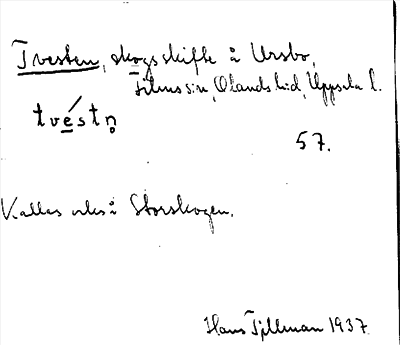 Tvesten, skogsskifte å Ursbo,
Films sn, Olands hd, Uppsala l.
tvéstn̥
57.
Kallas också Storskogen.
Hans Tjillman 1937